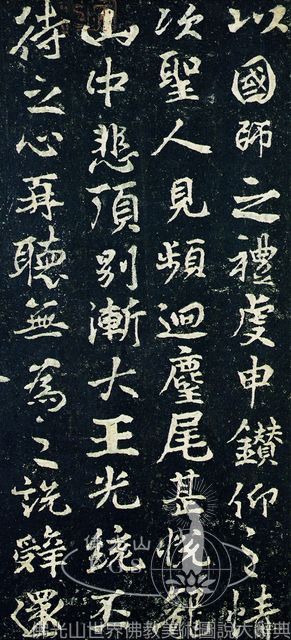 以國師之禮虔申鑽仰之情
次聖人見頻迴麈尾甚悅
山中悲頂別漸大王光統丕
待之心再聽無為之說辭還
佛光山
佛光山世界佛教美術圖說大辭典